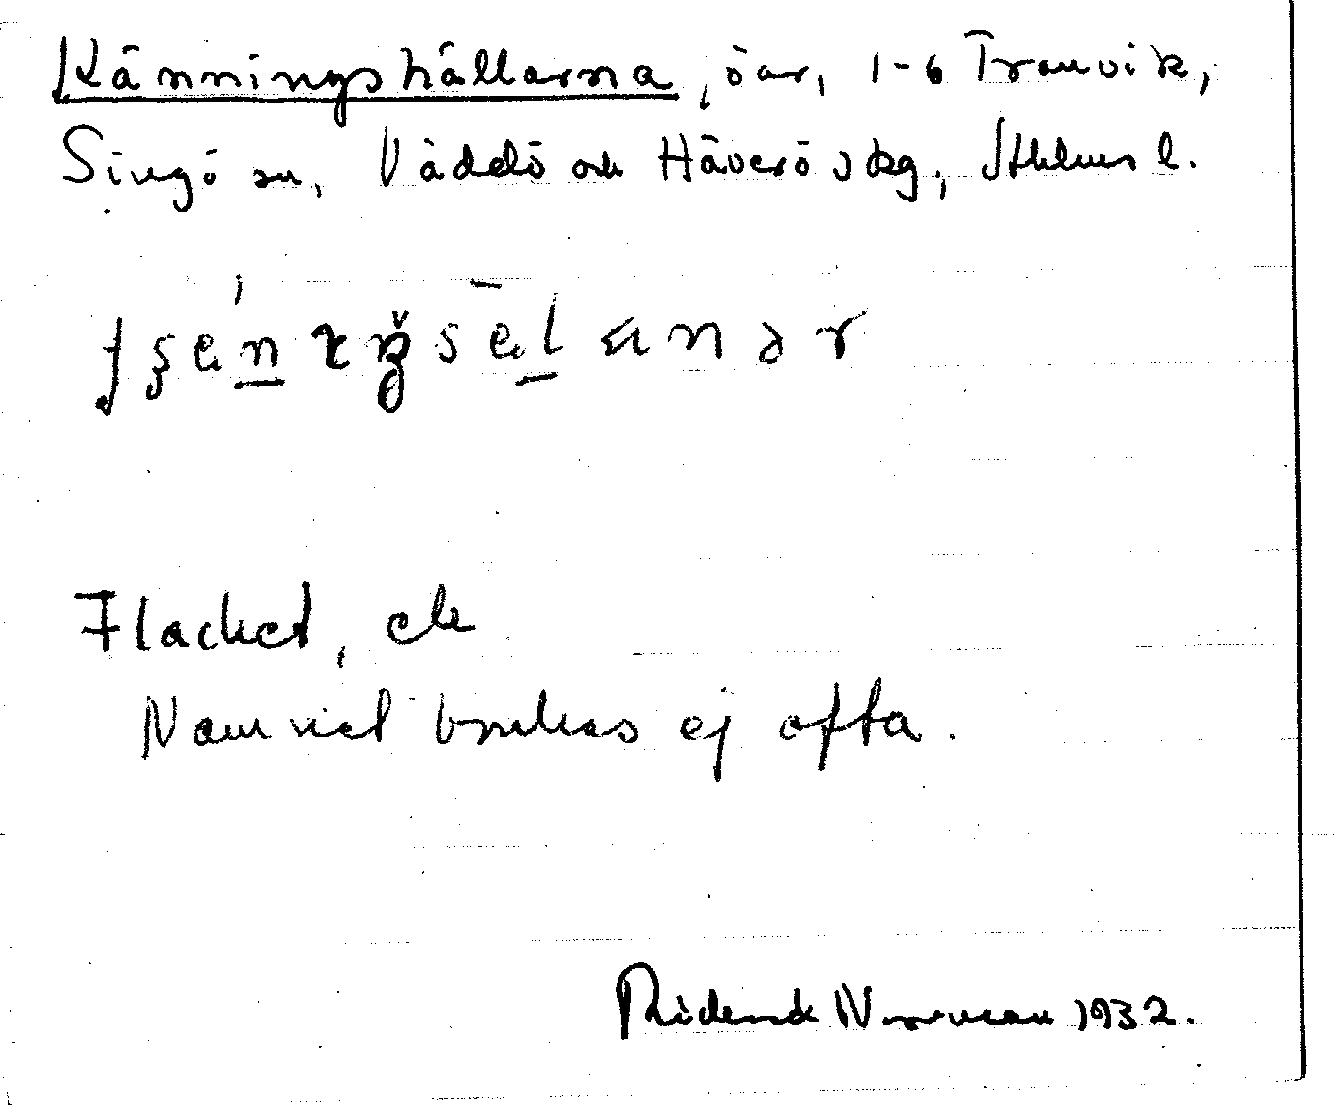 Känningshällarna, öar, 1-6 Tranvik,
Singö sn, Väddö och Häverö skg, Sthlms l.
Flacket, ek
Namnet brukas ej ofta.
Rickard Norrman 1932.